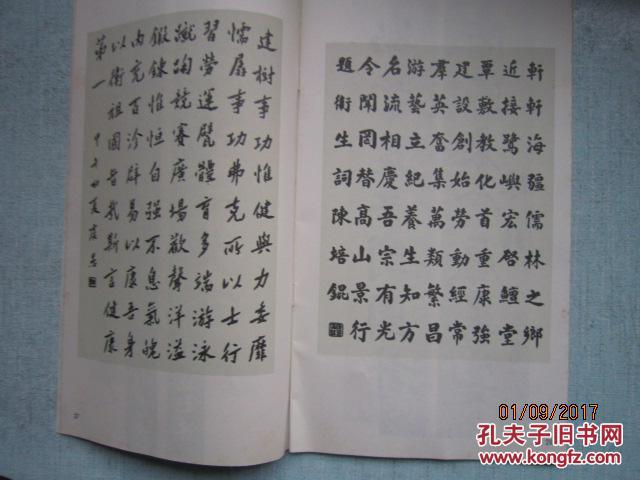 軒軒海疆儒林之鄉
近接鷺嶼宏啓鱣堂
覃敷教化首重康強
建設創始勞動經常
羣英奮集萬類繁昌
游藝立紀養生知方
名流相慶吾宗有光
令聞罔替高山景行
題衛生詞陳培錕
建樹事功惟健與力委靡
懦孱事功弗克所以士行
習勞運甓體育多端游泳
蹴踘競賽廣場歡聲洋溢
鍛鍊惟恒自强不息氣魄
内充百沴辟易以康吾身
以衛祖國旨哉斯言健康
第一
01/09/2017
孔夫子旧书网
KONGFZ.COM